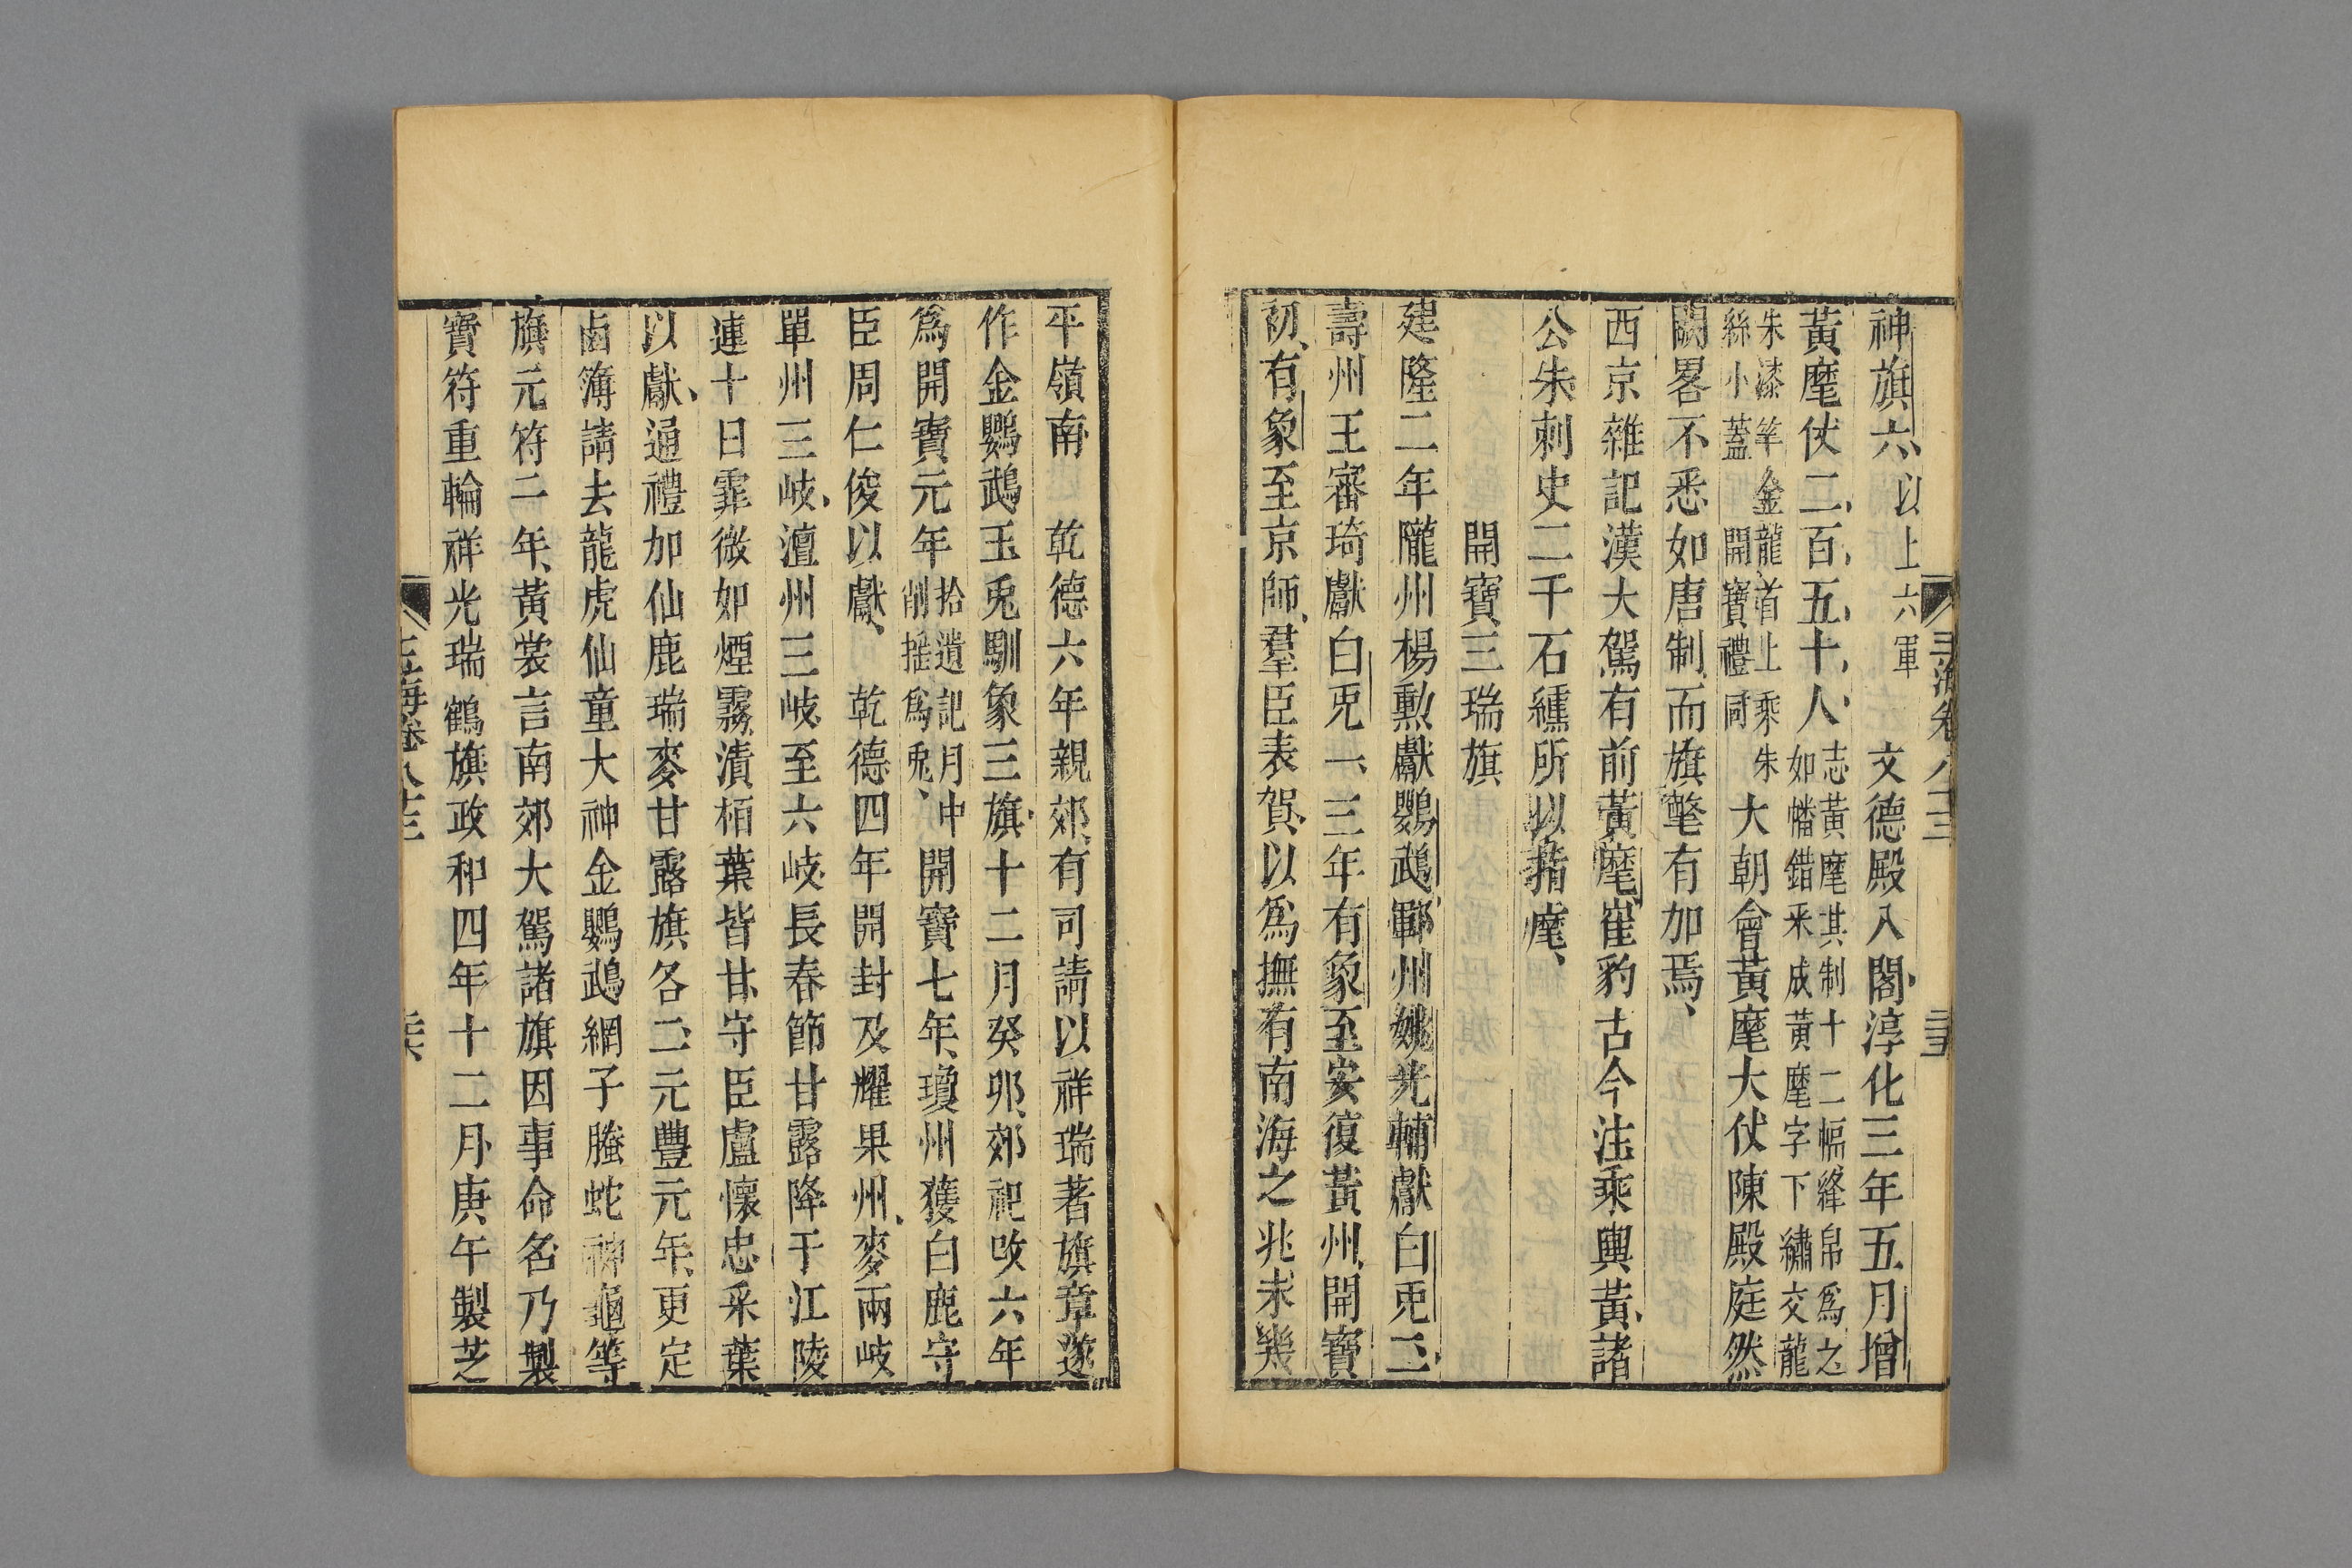 玉海卷八十三
神旗六以上六軍 文德殿入閤淳化三年五月增
黃麾仗二百五十人志黃麾其制十二幅絳帛爲之如幡錯采成黃麾字下繡交龍
朱漆竿金龍首上乘朱絲小蓋開寶禮同大朝會黃麾大仗陳殿庭然
闕畧不悉如唐制而旗氅有加焉
西京雜記漢大駕有前黃麾崔豹古今注乘輿黃諸
公朱刺史二千石纁所以指麾
開寶三瑞旗
建隆二年隴州楊勲獻鸚鵡鄆州姚光輔獻白兎二
壽州王審琦獻白兎一三年有象至安復黃州開寶
初有象至京師羣臣表賀以爲撫有南海之兆未幾
平嶺南 乾德六年親郊有司請以祥瑞著旗章遂
作金鸚鵡玉兎馴象三旗十二月癸卯郊祀改六年
爲開寶元年拾遺記月中削揺爲兎 開寶七年瓊州獲白鹿守
臣周仁俊以獻 乾德四年開封及耀果州麥兩岐
單州三岐澶州三岐至六岐長春節甘露降于江陵
連十日霏微如煙霧漬栢葉皆甘守臣盧懷忠采葉
以獻通禮加仙鹿瑞麥甘露旗各二元豐元年更定
鹵簿請去龍虎仙童大神金鸚鵡網子螣蛇神龜等
旗元符二年黃裳言南郊大駕諸旗因事命名乃製
寶符重輪祥光瑞鶴旗政和四年十二月庚午製芝
玉海卷八十三